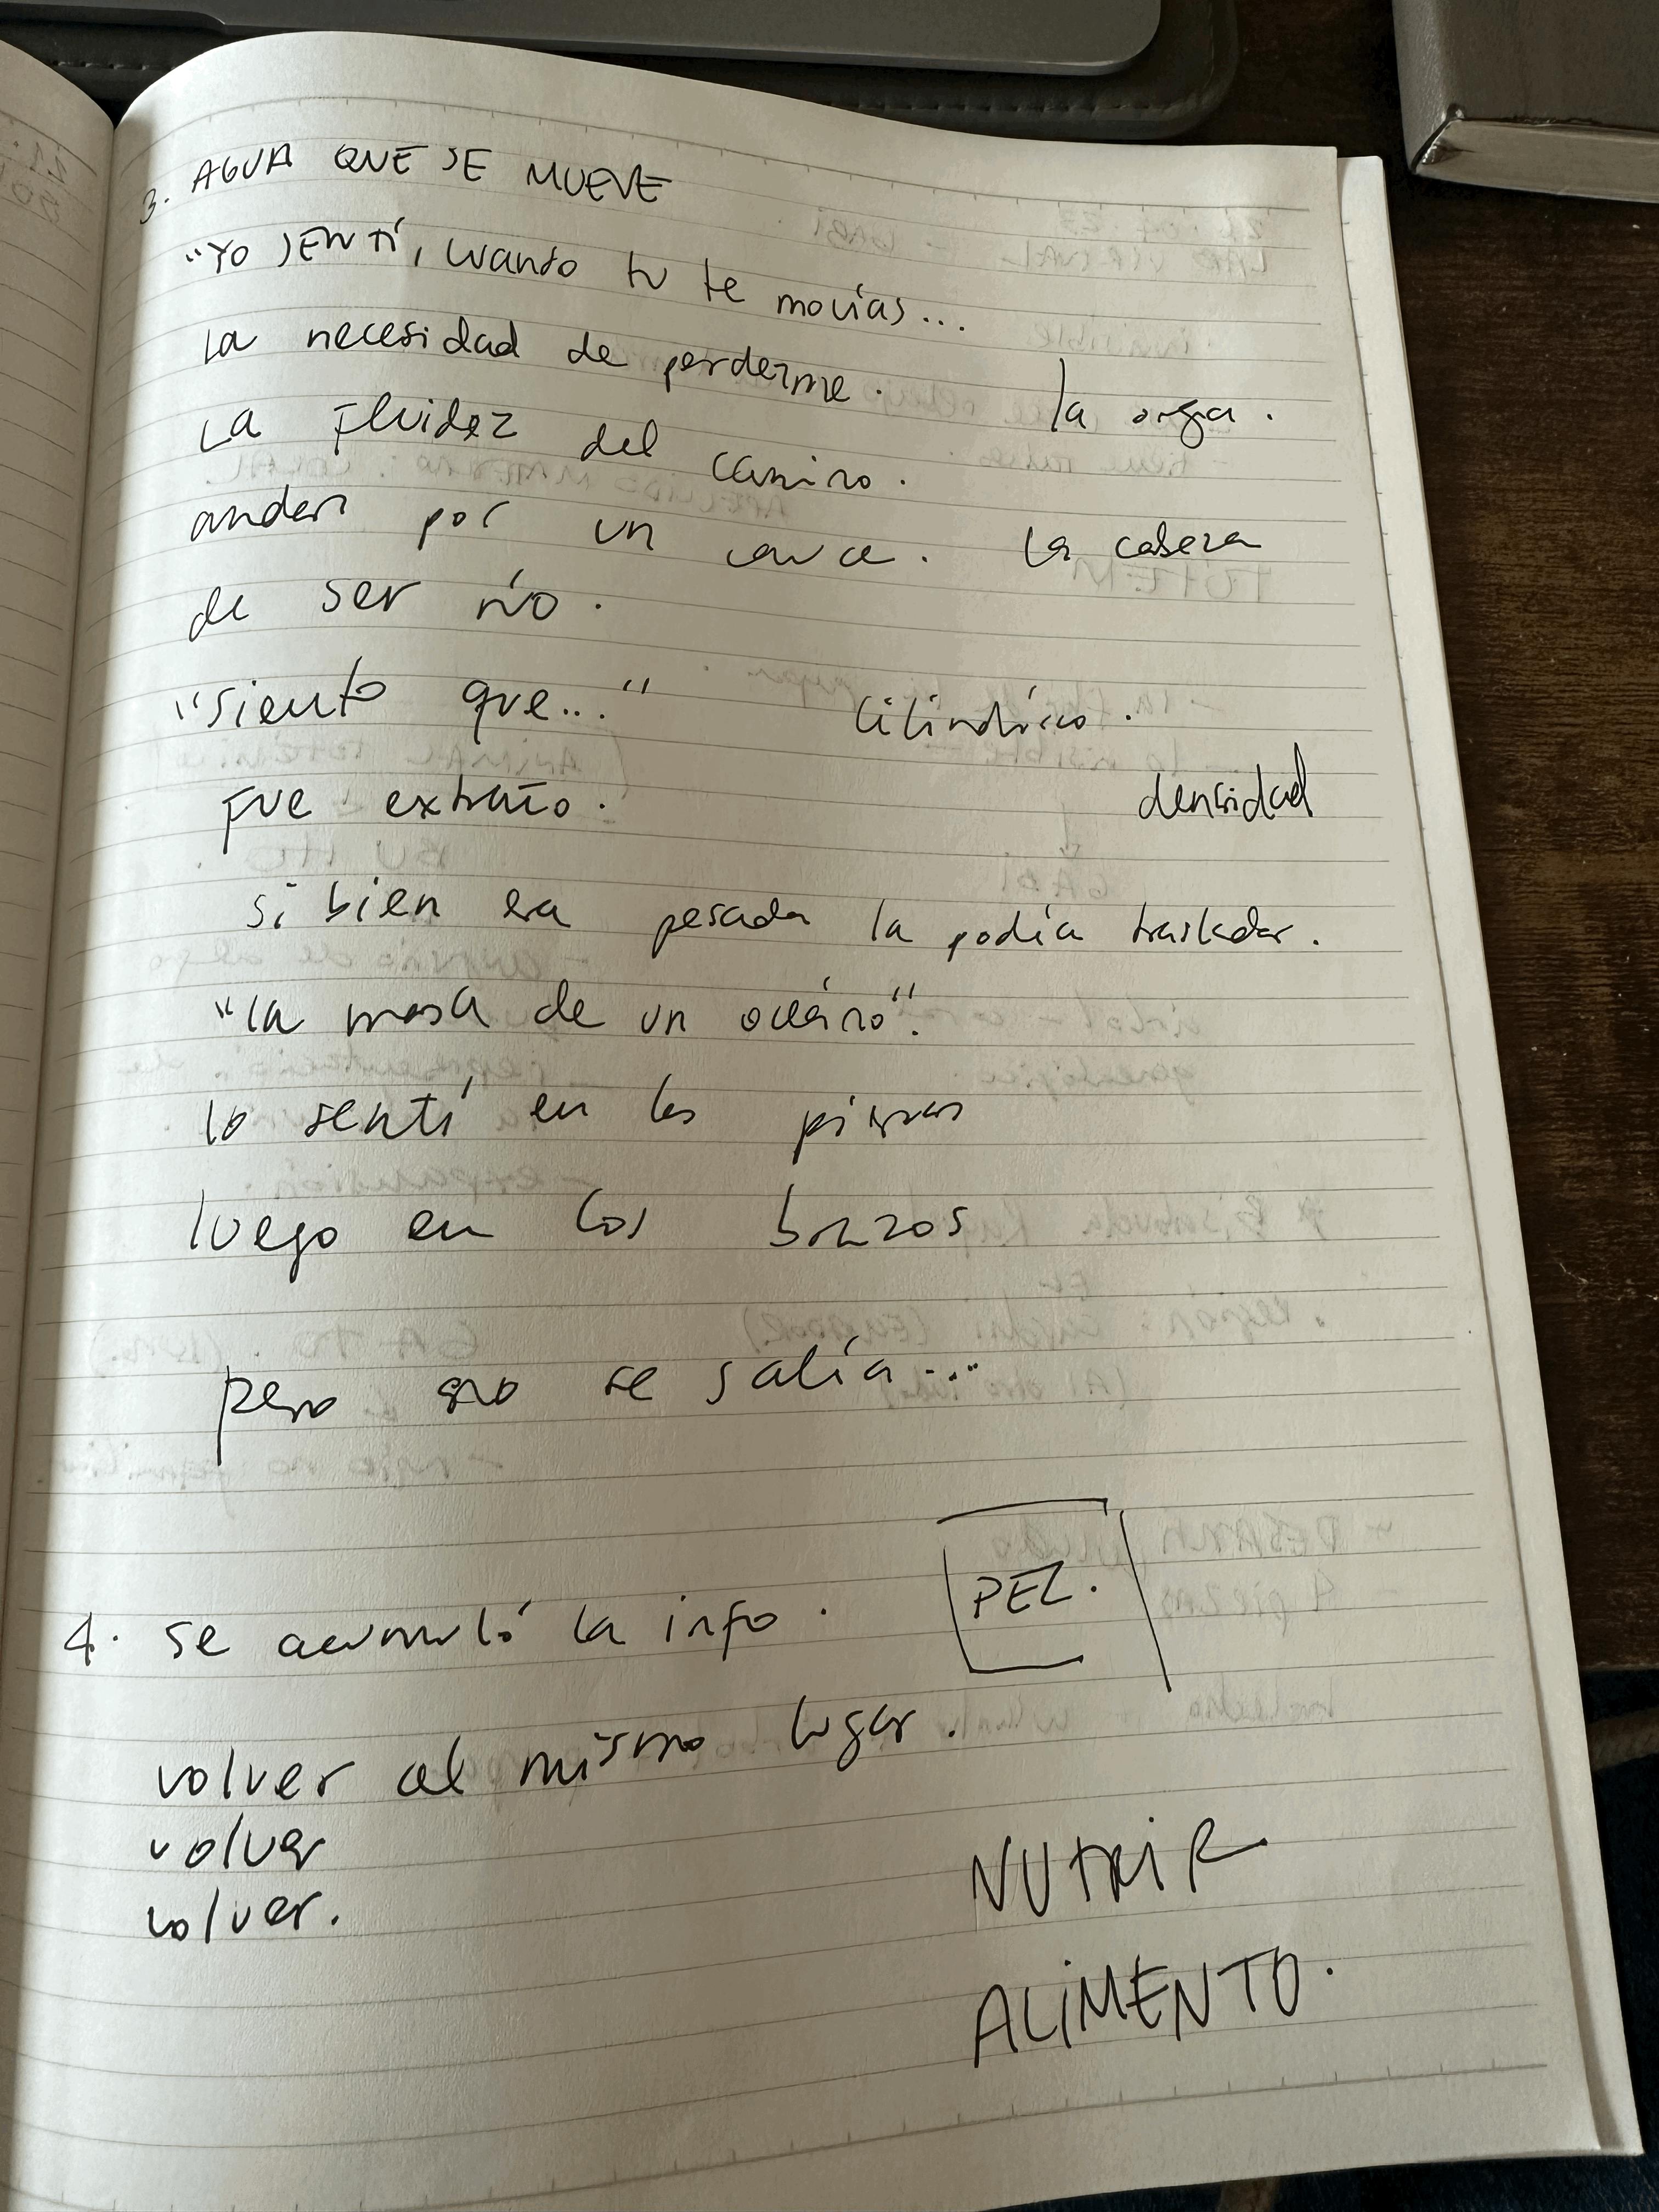 3. AGUA QUE SE MUEVE
"YO SENTÍ, cuando tu te movías...
La necesidad de perderme.
la orga.
La fluidez del camino.
andar por un cauce. La cabeza
de ser río.
"siento que..." Cilíndrico.
FUE extraño. densidad
si bien era pesada la podía trasladar.
"la masa de un océano".
lo sentí en las piernas
luego en los brazos
pero no se salía...
4. se acumuló la info. PEZ.
volver al mismo lugar.
volver
volver.
NUTRIR
ALIMENTO.